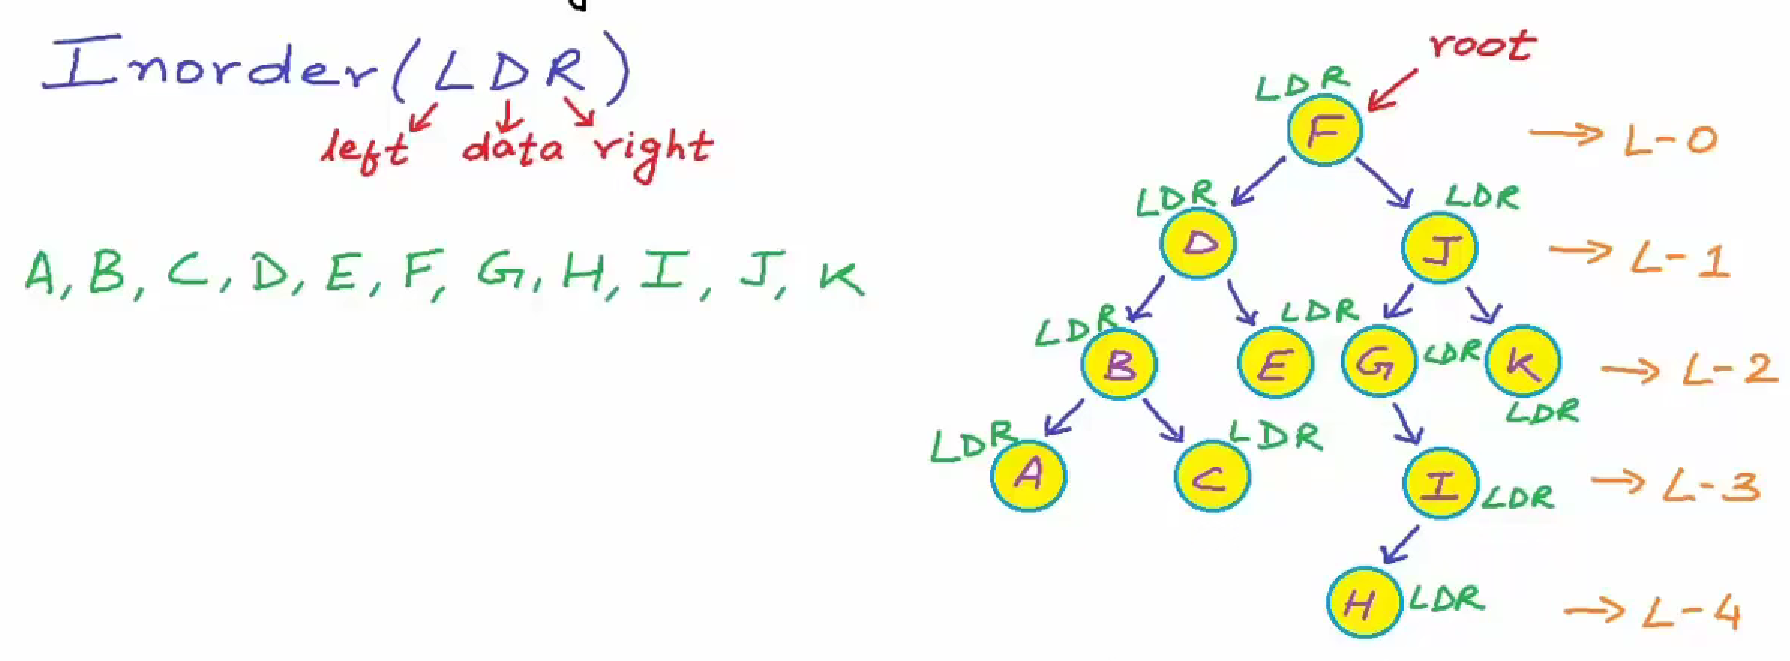 Inorder (LDR)
left data right
A, B, C, D, E, F, G, H, I, J, K
root
LDR
F
→ L-0
LDR
LDR
D
J
→ L-1
LDR
LDR
B
E
G
LDR
K
→ L-2
LDR
LDR
LDR
A
C
I
LDR
→ L-3
H
LDR
→ L-4